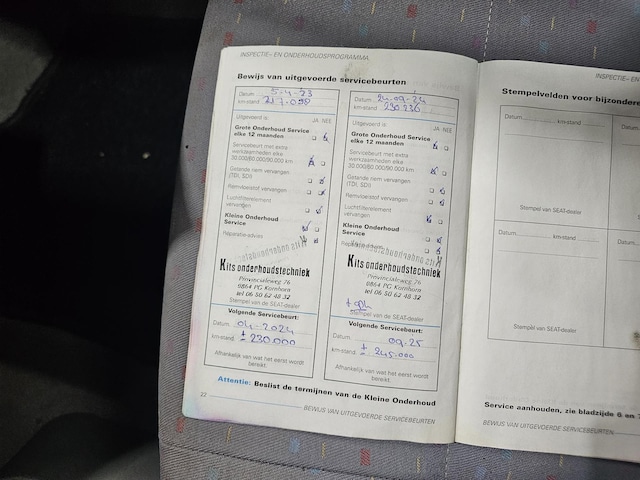 INSPECTIE- EN ONDERHOUDSPROGRAMMA
Bewijs van uitgevoerde servicebeurten
Datum 5-4-23
km-stand 217.098
Uitgevoerd is: JA NEE
Grote Onderhoud Service
elke 12 maanden
Servicebeurt met extra
werkzaamheden elke
30.000/60.000/90.000 km
Getande riem vervangen
(TDI, SDI)
Remvloeistof vervangen
Luchtfilterelement
vervangen
Kleine Onderhoud
Service
Reparatie-advies
Kits onderhoudstechniek
Provincialeweg 76
9864 PG Kornhorn
tel 06 50 62 48 32
Stempel van de SEAT-dealer
Volgende Servicebeurt:
Datum 04-2024
km-stand ± 230.000
Afhankelijk van wat het eerst wordt
bereikt.
Datum 24-09-24
km-stand 230.236
Uitgevoerd is: JA NEE
Grote Onderhoud Service
elke 12 maanden
Servicebeurt met extra
werkzaamheden elke
30.000/60.000/90.000 km
Getande riem vervangen
(TDI, SDI)
Remvloeistof vervangen
Luchtfilterelement
vervangen
Kleine Onderhoud
Service
Kits onderhoudstechniek
Provincialeweg 76
9864 PG Kornhorn
tel 06 50 62 48 32
+ apk
Stempel van de SEAT-dealer
Volgende Servicebeurt:
Datum 09-25
km-stand ± 245.000
Afhankelijk van wat het eerst wordt
bereikt.
Attentie: Beslist de termijnen van de Kleine Onderhoud
22
BEWIJS VAN UITGEVOERDE SERVICEBEURTEN
INSPECTIE- EN
Stempelvelden voor bijzonder
Datum km-stand
Stempel van de SEAT-dealer
Datum km-stand
Stempel van de SEAT-dealer
Service aanhouden, zie bladzijde 6 en 7
BEWIJS VAN UITGEVOERDE SERVICEBEURTEN